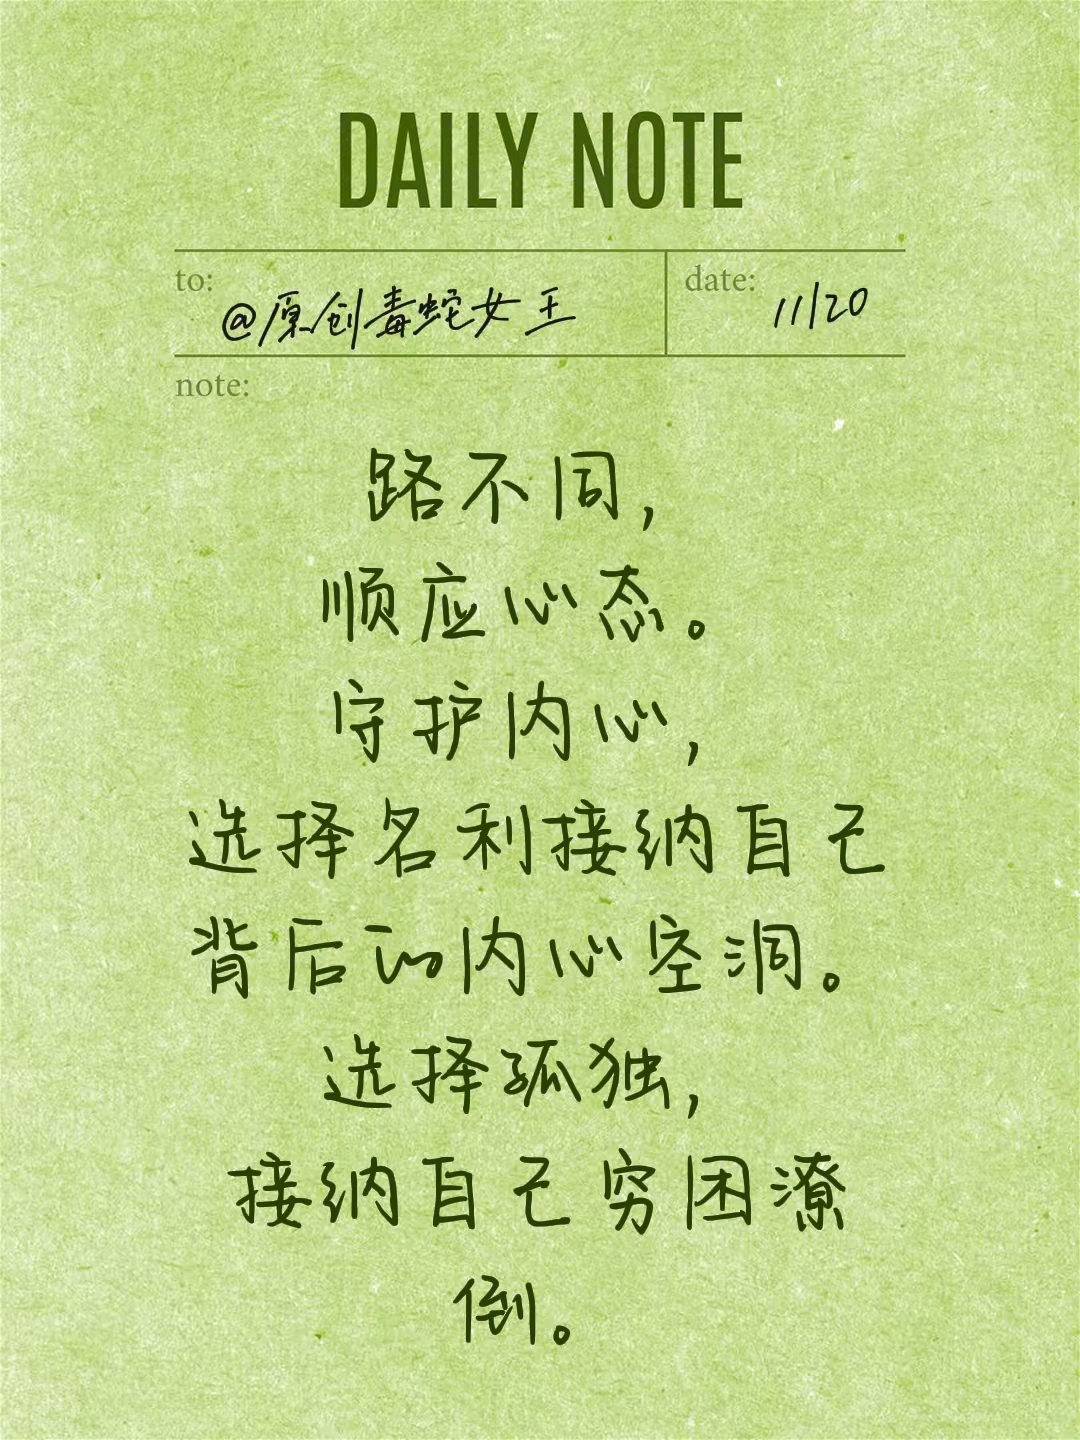 DAILY NOTE
to: @原创毒蛇女王
date: 11/20
note:
路不同，
顺应心态。
守护内心，
选择名利接纳自己
背后的内心空洞。
选择孤独，
接纳自己穷困潦
倒。